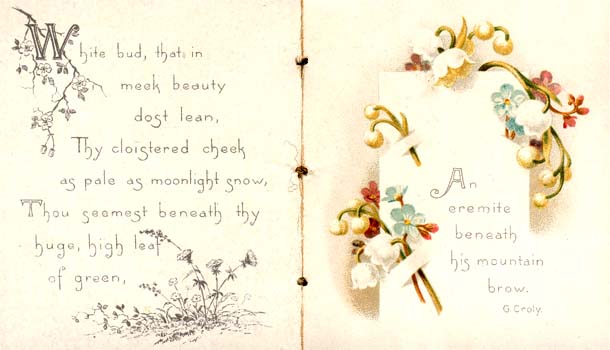 White bud, that in
meek beauty
dost lean,
Thy cloistered cheek
as pale as moonlight snow,
Thou seemest beneath thy
huge, high leaf
of green,
An
eremite
beneath
his mountain
brow.
G. Croly.